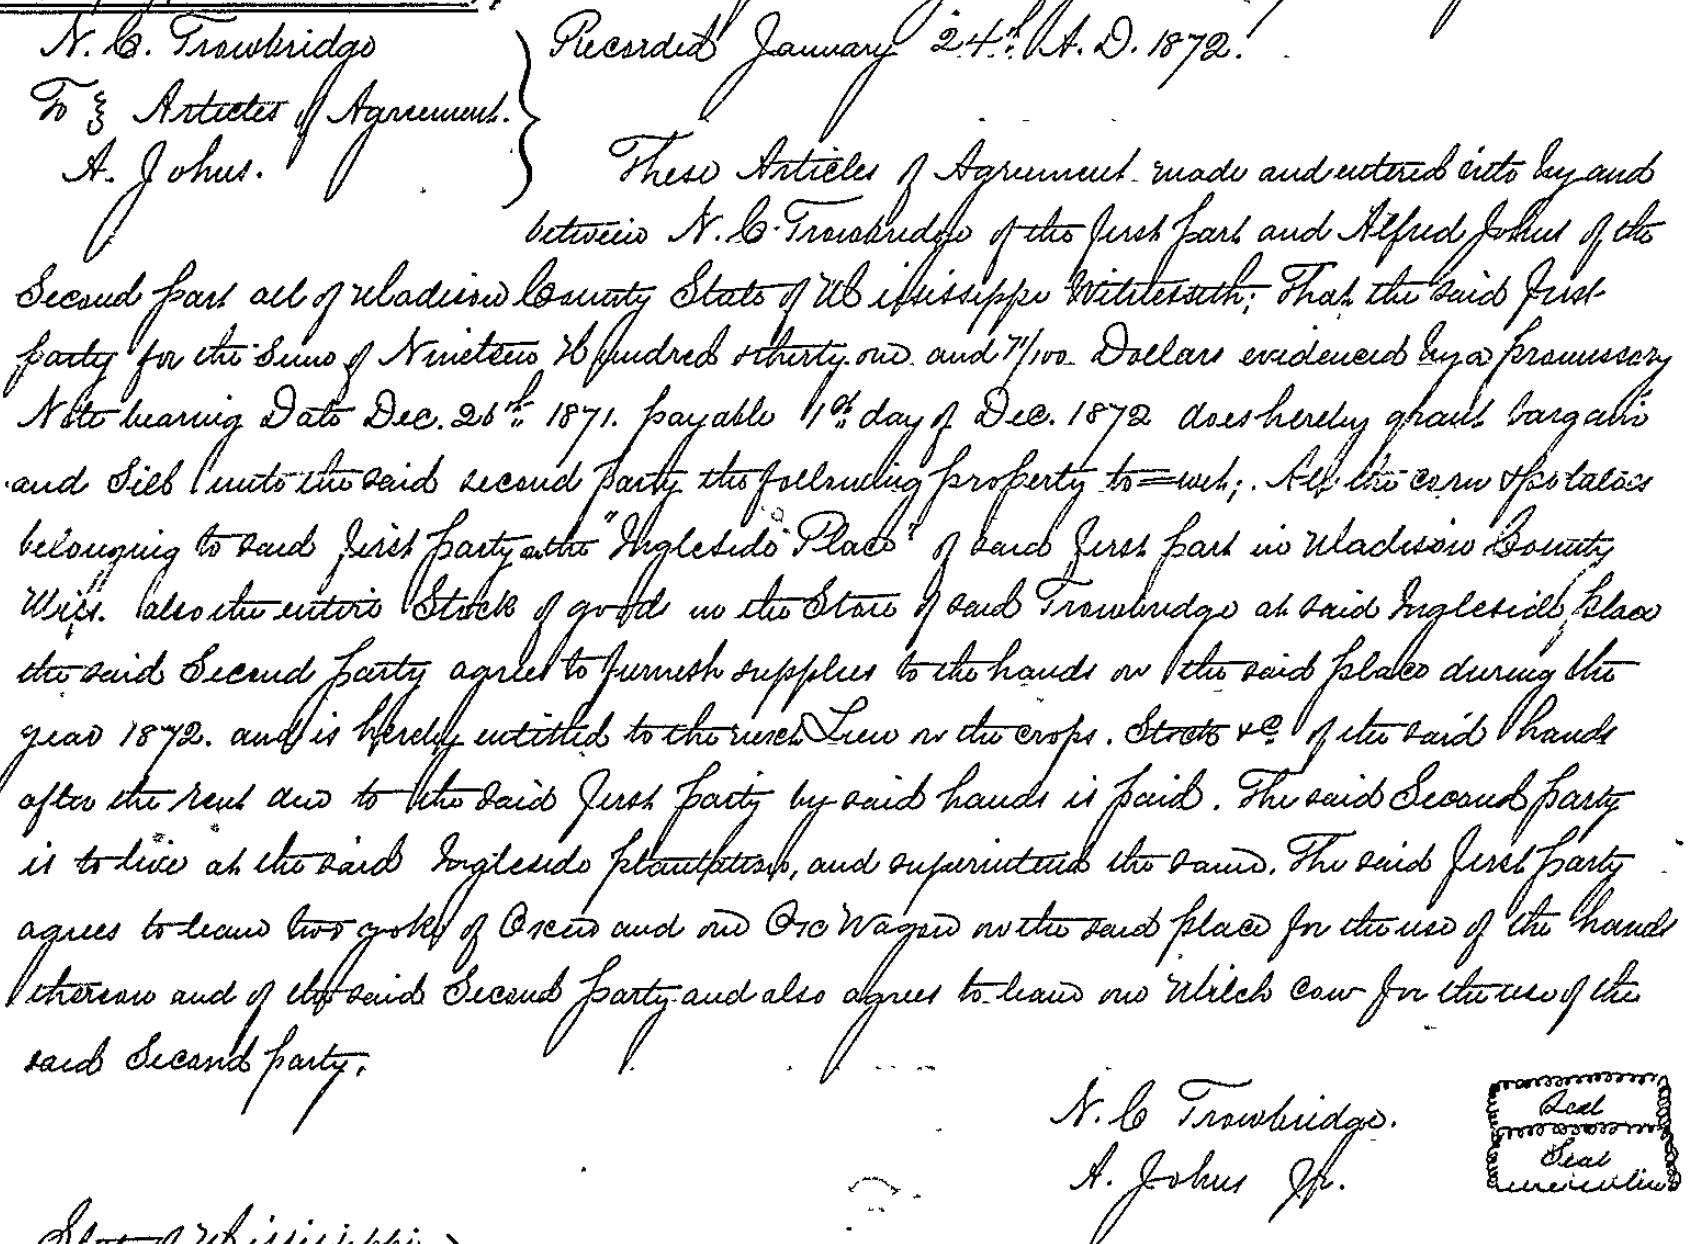 N. C. Trowbridge
To } Articles of Agreement.
A. Johns.
Recorded January 24th A. D. 1872.
These Articles of Agreement made and entered into by and
between N. C. Trowbridge of the first part and Alfred Johns of the
Second part all of Madison County State of Mississippi Witnesseth; That the said first
party for the Sum of Nineteen Hundred & thirty one and 71/100 Dollars evidenced by a promissory
Note bearing Date Dec. 26th 1871. payable 1st day of Dec. 1872 does hereby grant bargain
and Sell unto the said second party the following property to=wit; All the corn & potatoes
belonging to said first party on the "Ingleside Place" of said first part in Madison County
Miss. also the entire Stock of good in the Store of said Trowbridge at said Ingleside place
the said Second party agrees to furnish supplies to the hands on the said place during the
year 1872. and is hereby entitled to the next Lien on the crops. Stock &c of the said hands
after the rent due to the said first party by said hands is paid. The said Second party
is to live at the said Ingleside plantation, and superintend the same. The said first party
agrees to leave two yoke of Oxen and one Ox Wagon on the said place for the use of the hands
thereon and of the said Second party and also agrees to leave one Milch cow for the use of the
said Second party.
N. C Trowbridge. Seal
A. Johns Jr. Seal
State of Mississippi